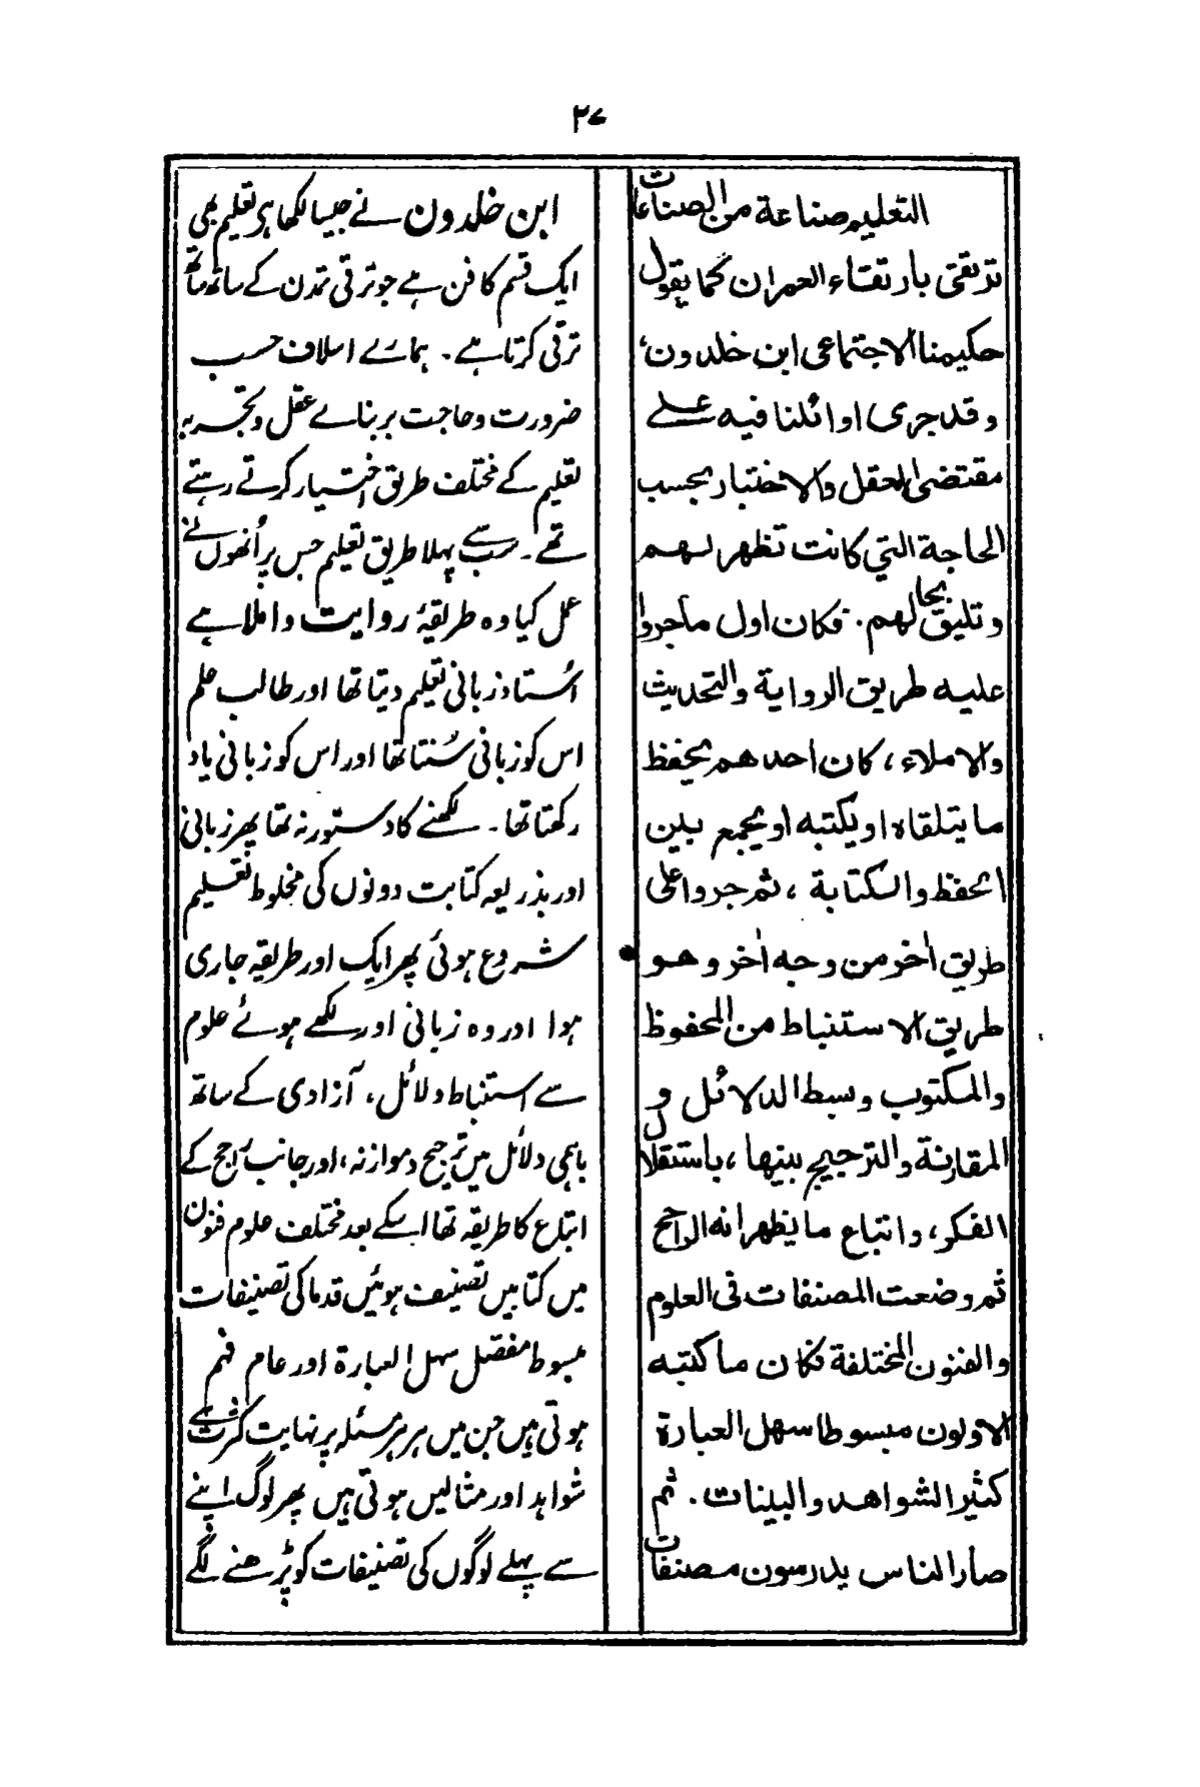 ۳۷
التعليم صناعة من الصناعات
ترتقى بارتقاء العمران كما يقول
حكيمنا الاجتماعى ابن خلدون،
وقد جرى اوائلنا فيه على
مقتضى العقل والاختبار بحسب
الحاجة التي كانت تظهر لهم
وتليق بحالهم. فكان اول ما جروا
عليه طريق الرواية والتحديث
والاملاء، كان احدهم يحفظ
ما يتلقاه او يكتبه او يجمع بين
الحفظ والكتابة، ثم جروا على
طريق اخر من وجه اخر وهو
طريق الاستنباط من المحفوظ
والمكتوب وبسط الدلائل و
المقارنة والترجيح بينها، باستقلال
الفكر، واتباع ما يظهر انه الراجح
ثم وضعت المصنفات فى العلوم
والفنون المختلفة فكان ما كتبه
الاولون مبسوطا سهل العبارة
كثير الشواهد والبينات. ثم
صار الناس يدرسون مصنفات
ابن خلدون نے جیسا لکھا ہر تعلیم بھی
ایک قسم کا فن ہے جو ترقی تمدن کے ساتھ ساتھ
ترقی کرتا ہے۔ ہمارے اسلاف حسب
ضرورت و حاجت بر بنائے عقل و تجربہ
تعلیم کے مختلف طریق اختیار کرتے رہتے
تھے۔ سب سے پہلا طریق تعلیم جس پر اُنھوں نے
عمل کیا وہ طریقۂ روایت و املا ہے
اُستاد زبانی تعلیم دیتا تھا اور طالب علم
اس کو زبانی سُنتا تھا اور اس کو زبانی یاد
رکھتا تھا۔ لکھنے کا دستور نہ تھا پھر زبانی
اور بذریعہ کتابت دونوں کی مخلوط تعلیم
شروع ہوئی پھر ایک اور طریقہ جاری
ہوا اور وہ زبانی اور لکھے ہوئے علوم
سے استنباط دلائل، آزادی کے ساتھ
باہمی دلائل میں ترجیح و موازنہ، اور جانب راجح کے
اتباع کا طریقہ تھا اسکے بعد مختلف علوم فنون
میں کتابیں تصنیف ہوئیں قدما کی تصنیفات
مبسوط مفصّل سہل العبارۃ اور عام فہم
ہوتی ہیں جن میں ہر ہر مسئلہ پر نہایت کثرت سے
شواہد اور مثالیں ہوتی ہیں پھر لوگ اپنے
سے پہلے لوگوں کی تصنیفات کو پڑھنے لگے